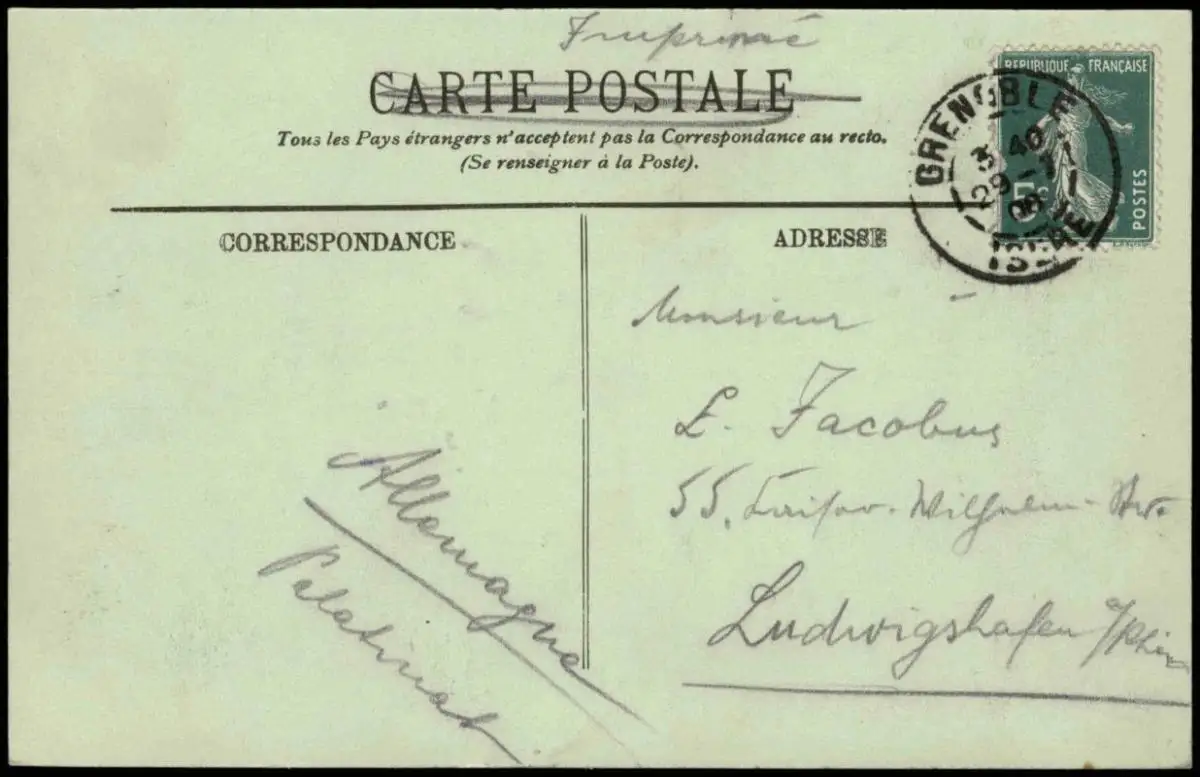 Imprimé
CARTE POSTALE
Tous les Pays étrangers n'acceptent pas la Correspondance au recto.
(Se renseigner à la Poste).
REPUBLIQUE FRANÇAISE
POSTES
GRENOBLE
3 40
29-11
08
ISERE
CORRESPONDANCE
ADRESSE
Monsieur
E. Jacobus
55, Kaiser-Wilhelm-Str.
Ludwigshafen a/Rhein
Allemagne
Palatinat